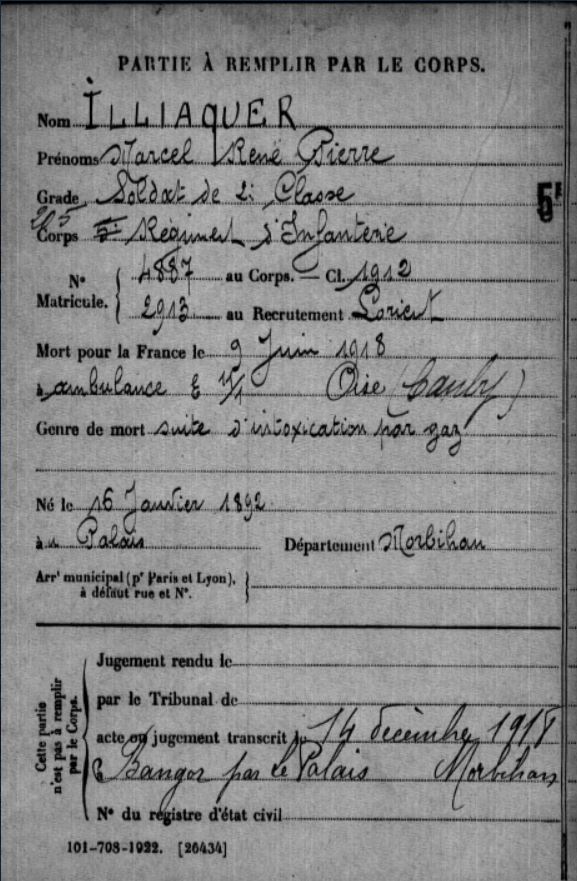 PARTIE À REMPLIR PAR LE CORPS.
Nom ILLIAQUER
Prénoms Marcel René Pierre
Grade Soldat de 2e Classe
5e
205
Corps Régiment d'Infanterie
N° Matricule. 4887 au Corps. — Cl. 1912
2913 au Recrutement Lorient
Mort pour la France le 9 Juin 1918
à ambulance E 4/1 Oise (Canly)
Genre de mort suite d'intoxication par gaz
Né le 16 Janvier 1892
à u Palais Département Morbihan
Arrt municipal (pr Paris et Lyon),
à défaut rue et N°.
Cette partie
n'est pas à remplir
par le Corps.
Jugement rendu le
par le Tribunal de
acte ou jugement transcrit le 14 décembre 1918
à Bangor par Le Palais Morbihan
N° du registre d'état civil
101-708-1922. [26434]